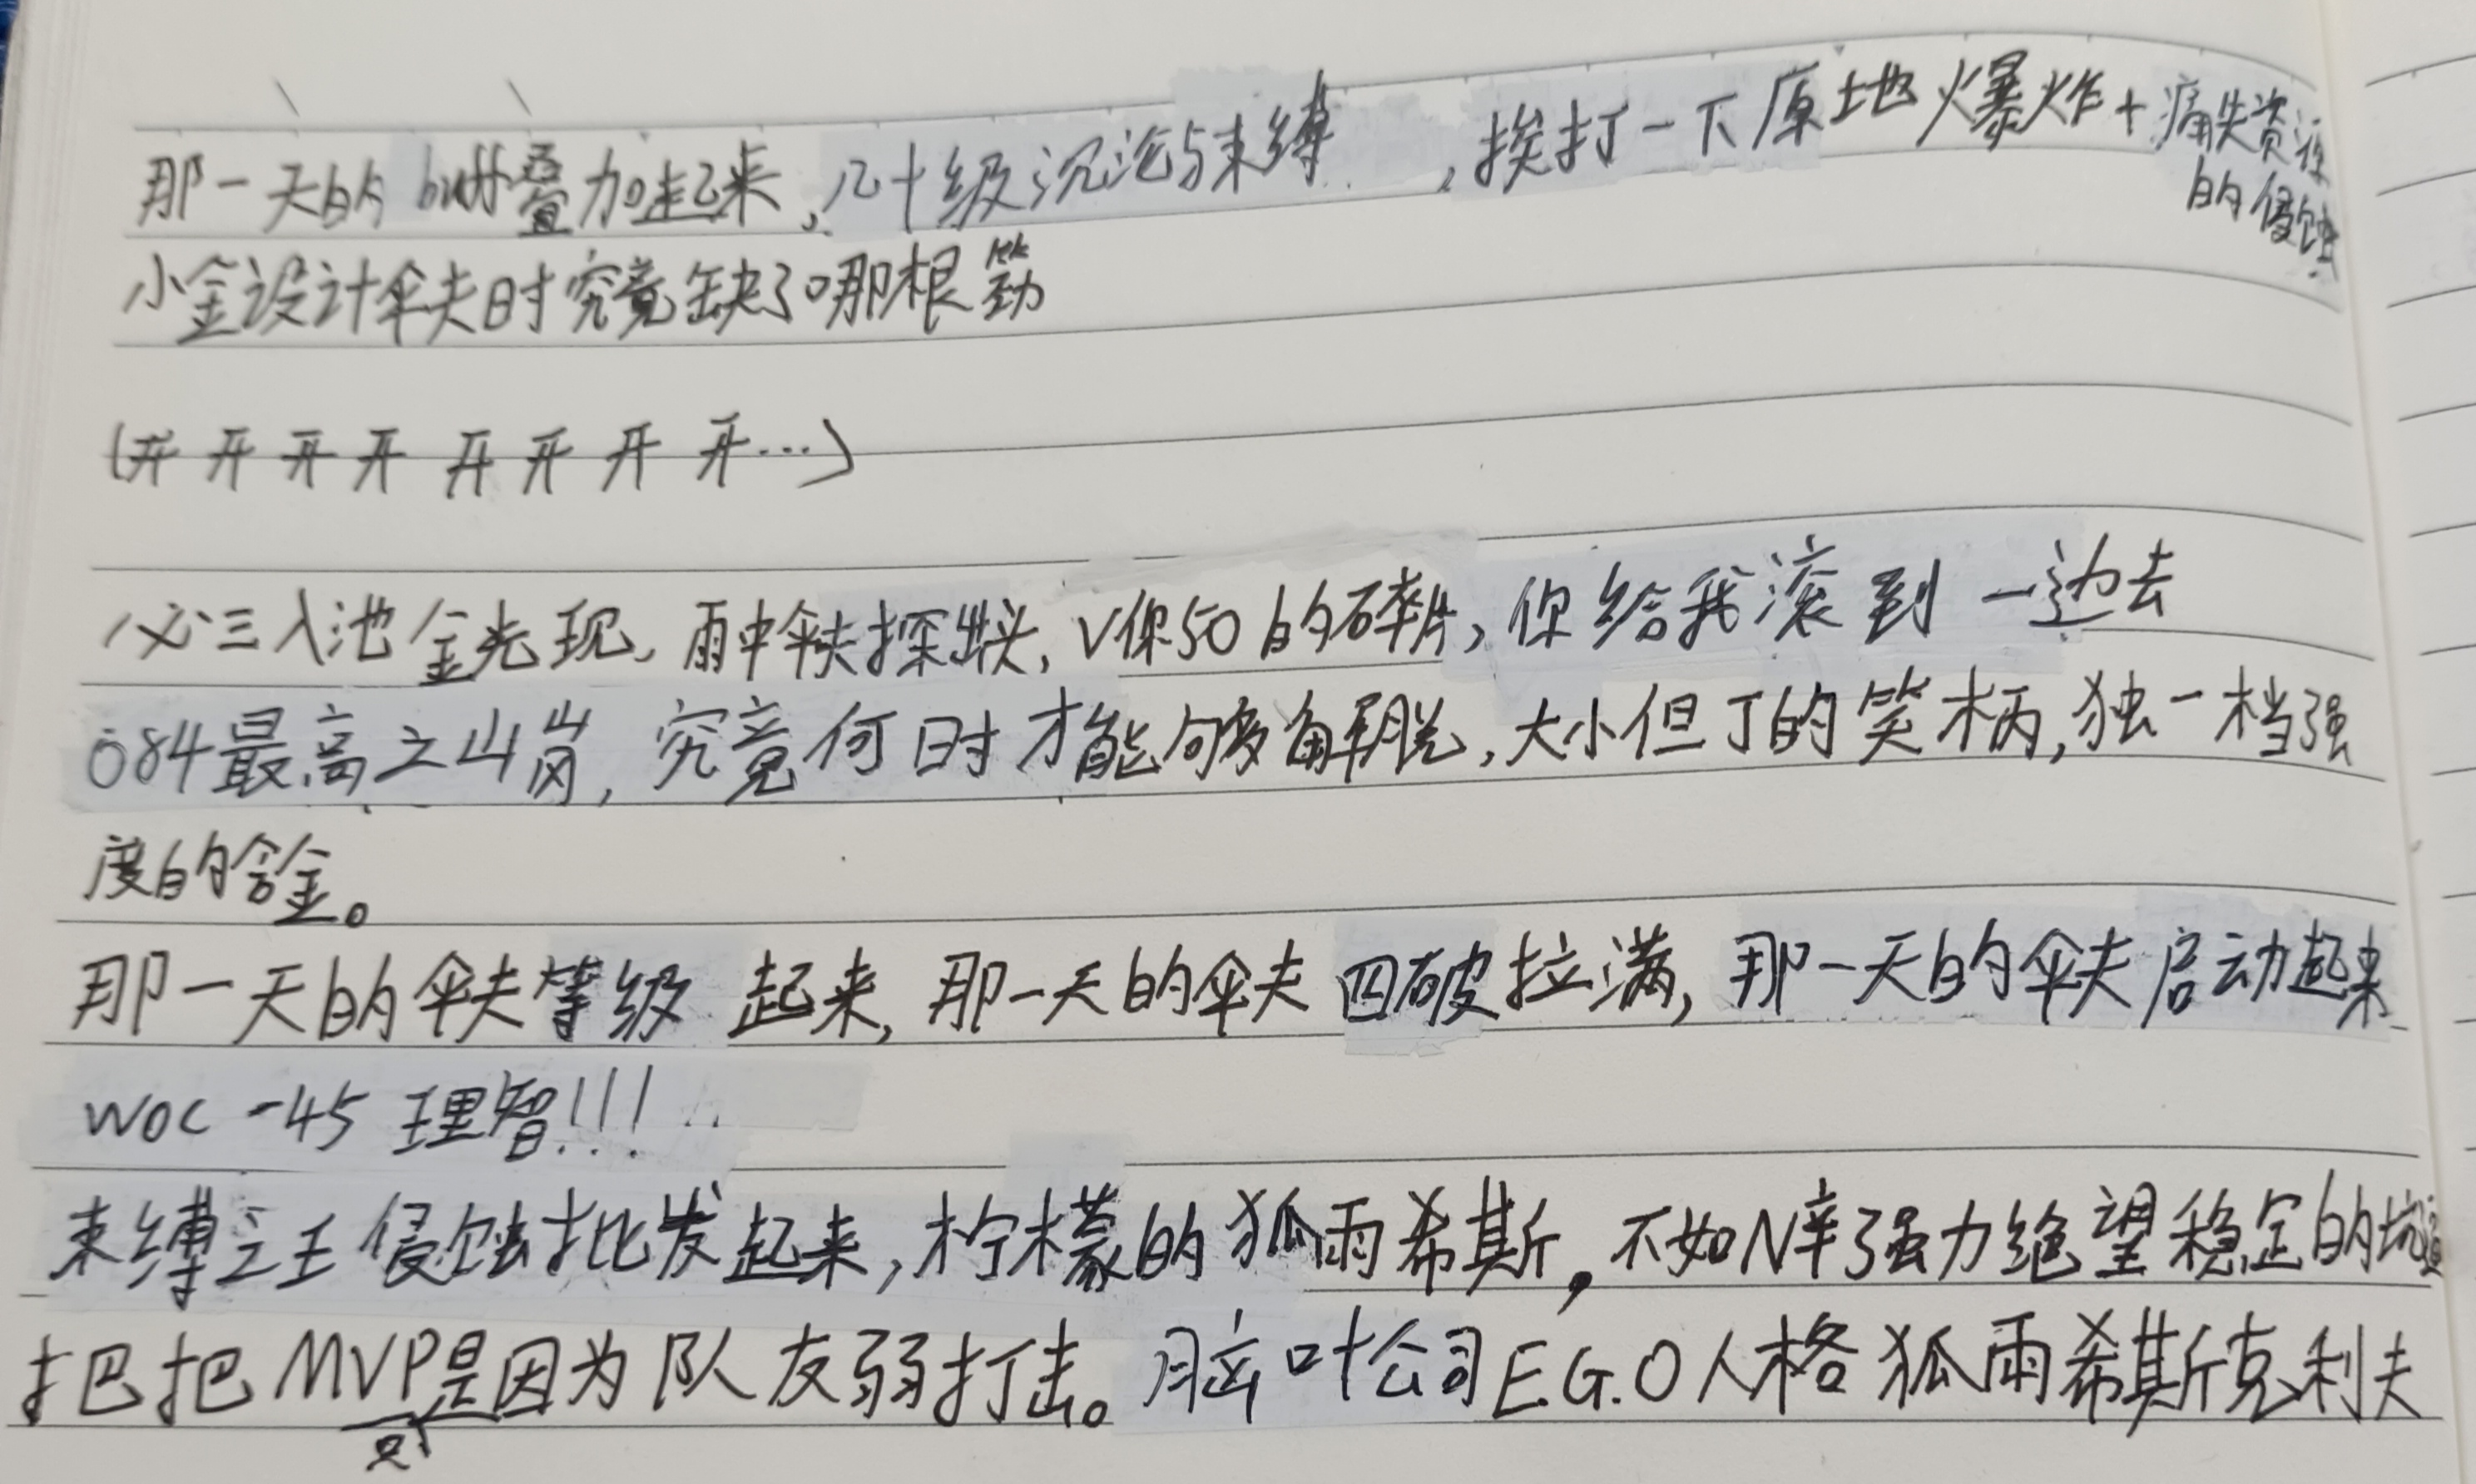 那一天的buff叠加起来,几十级沉沦与束缚,挨打一下原地爆炸+痛失资源
的侵蚀
小金设计伞夫时究竟缺了哪根筋
(开开开开开开开开...)
必三入池金光现,雨中伞夫探出头,V你50的碎片,你给我滚到一边去
084最高之山岗,究竟何时才能够解脱,大小但丁的笑柄,独一档强
度的含金。
那一天的伞夫等级起来,那一天的伞夫四破拉满,那一天的伞夫启动起来
woc -45理智!!!
束缚之王侵蚀批发起来,柠檬的狐雨希斯,不如N辛强力绝望稳定的坑道
把把MVP是因为队友弱打击。脑叶公司E.G.O人格狐雨希斯克利夫
只